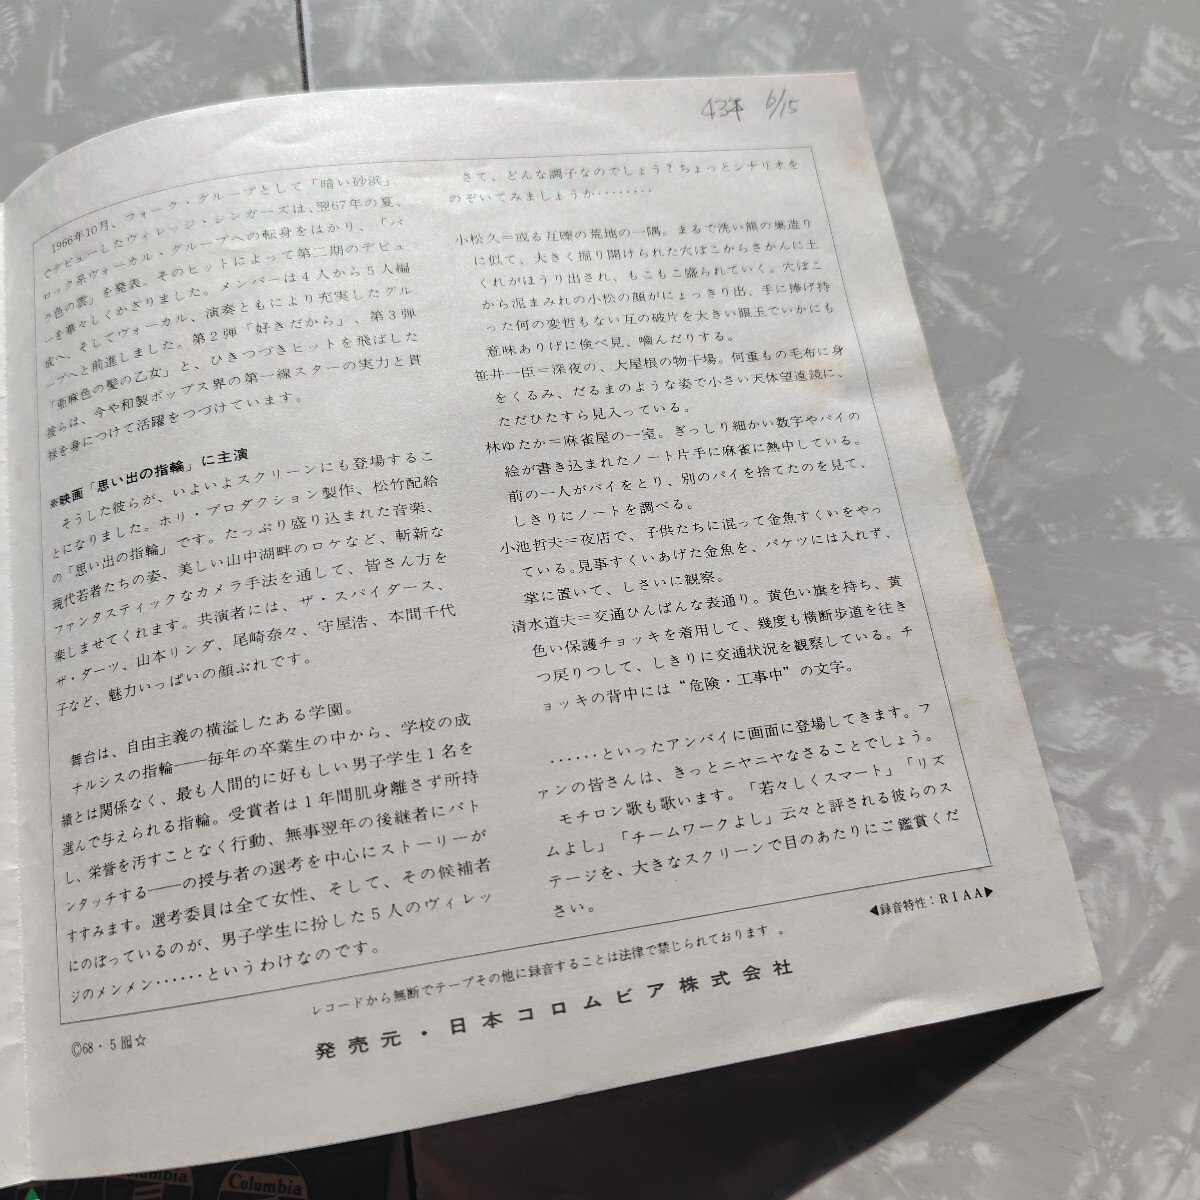 43年 6/15
1966年10月、フォーク・グループとして「暗い砂浜」
でデビューしたヴィレッジ・シンガーズは、翌67年の夏、
ロック系ヴォーカル・グループへの転身をはかり、「バ
ラ色の雲」を発表。そのヒットによって第二期のデビュ
ーを華々しくかざりました。メンバーは4人から5人編
成へ、そしてヴォーカル、演奏ともにより充実したグル
ープへと前進しました。第2弾「好きだから」、第3弾
「亜麻色の髪の乙女」と、ひきつづきヒットを飛ばした
彼らは、今や和製ポップス界の第一線スターの実力と貫
禄を身につけて活躍をつづけています。
※映画「思い出の指輪」に主演
そうした彼らが、いよいよスクリーンにも登場するこ
とになりました。ホリ・プロダクション製作、松竹配給
の「思い出の指輪」です。たっぷり盛り込まれた音楽、
現代若者たちの姿、美しい山中湖畔のロケなど、斬新な
ファンタスティックなカメラ手法を通して、皆さん方を
楽しませてくれます。共演者には、ザ・スパイダース、
ザ・ダーツ、山本リンダ、尾崎奈々、守屋浩、本間千代
子など、魅力いっぱいの顔ぶれです。
舞台は、自由主義の横溢したある学園。
ナルシスの指輪――毎年の卒業生の中から、学校の成
績とは関係なく、最も人間的に好もしい男子学生1名を
選んで与えられる指輪。受賞者は1年間肌身離さず所持
し、栄誉を汚すことなく行動、無事翌年の後継者にバト
ンタッチする――の授与者の選考を中心にストーリーが
すすみます。選考委員は全て女性、そして、その候補者
にのぼっているのが、男子学生に扮した5人のヴィレッ
ジのメンメン……というわけなのです。
さて、どんな調子なのでしょう？ちょっとシナリオを
のぞいてみましょうか………
小松久＝或る瓦礫の荒地の一隅。まるで洗い熊の巣造り
に似て、大きく掘り開けられた穴ぼこからさかんに土
くれがほうり出され、もこもこ盛られていく。穴ぼこ
から泥まみれの小松の顔がにょっきり出、手に捧げ持
った何の変哲もない瓦の破片を大きい眼玉でいかにも
意味ありげに倹べ見、噛んだりする。
笹井一臣＝深夜の、大屋根の物干場。何重もの毛布に身
をくるみ、だるまのような姿で小さい天体望遠鏡に、
ただひたすら見入っている。
林ゆたか＝麻雀屋の一室。ぎっしり細かい数字やパイの
絵が書き込まれたノート片手に麻雀に熱中している。
前の一人がパイをとり、別のパイを捨てたのを見て、
しきりにノートを調べる。
小池哲夫＝夜店で、子供たちに混って金魚すくいをやっ
ている。見事すくいあげた金魚を、バケツには入れず、
掌に置いて、しさいに観察。
清水道夫＝交通ひんぱんな表通り。黄色い旗を持ち、黄
色い保護チョッキを着用して、幾度も横断歩道を往き
つ戻りつして、しきりに交通状況を観察している。チ
ョッキの背中には“危険・工事中”の文字。
……といったアンバイに画面に登場してきます。フ
ァンの皆さんは、きっとニヤニヤなさることでしょう。
モチロン歌も歌います。「若々しくスマート」「リズ
ムよし」「チームワークよし」云々と評される彼らのス
テージを、大きなスクリーンで目のあたりにご鑑賞くだ
さい。
◀録音特性：RIAA▶
レコードから無断でテープその他に録音することは法律で禁じられております。
発売元・日本コロムビア株式会社
Ⓒ68・5 ☆
Columbia
Columbia